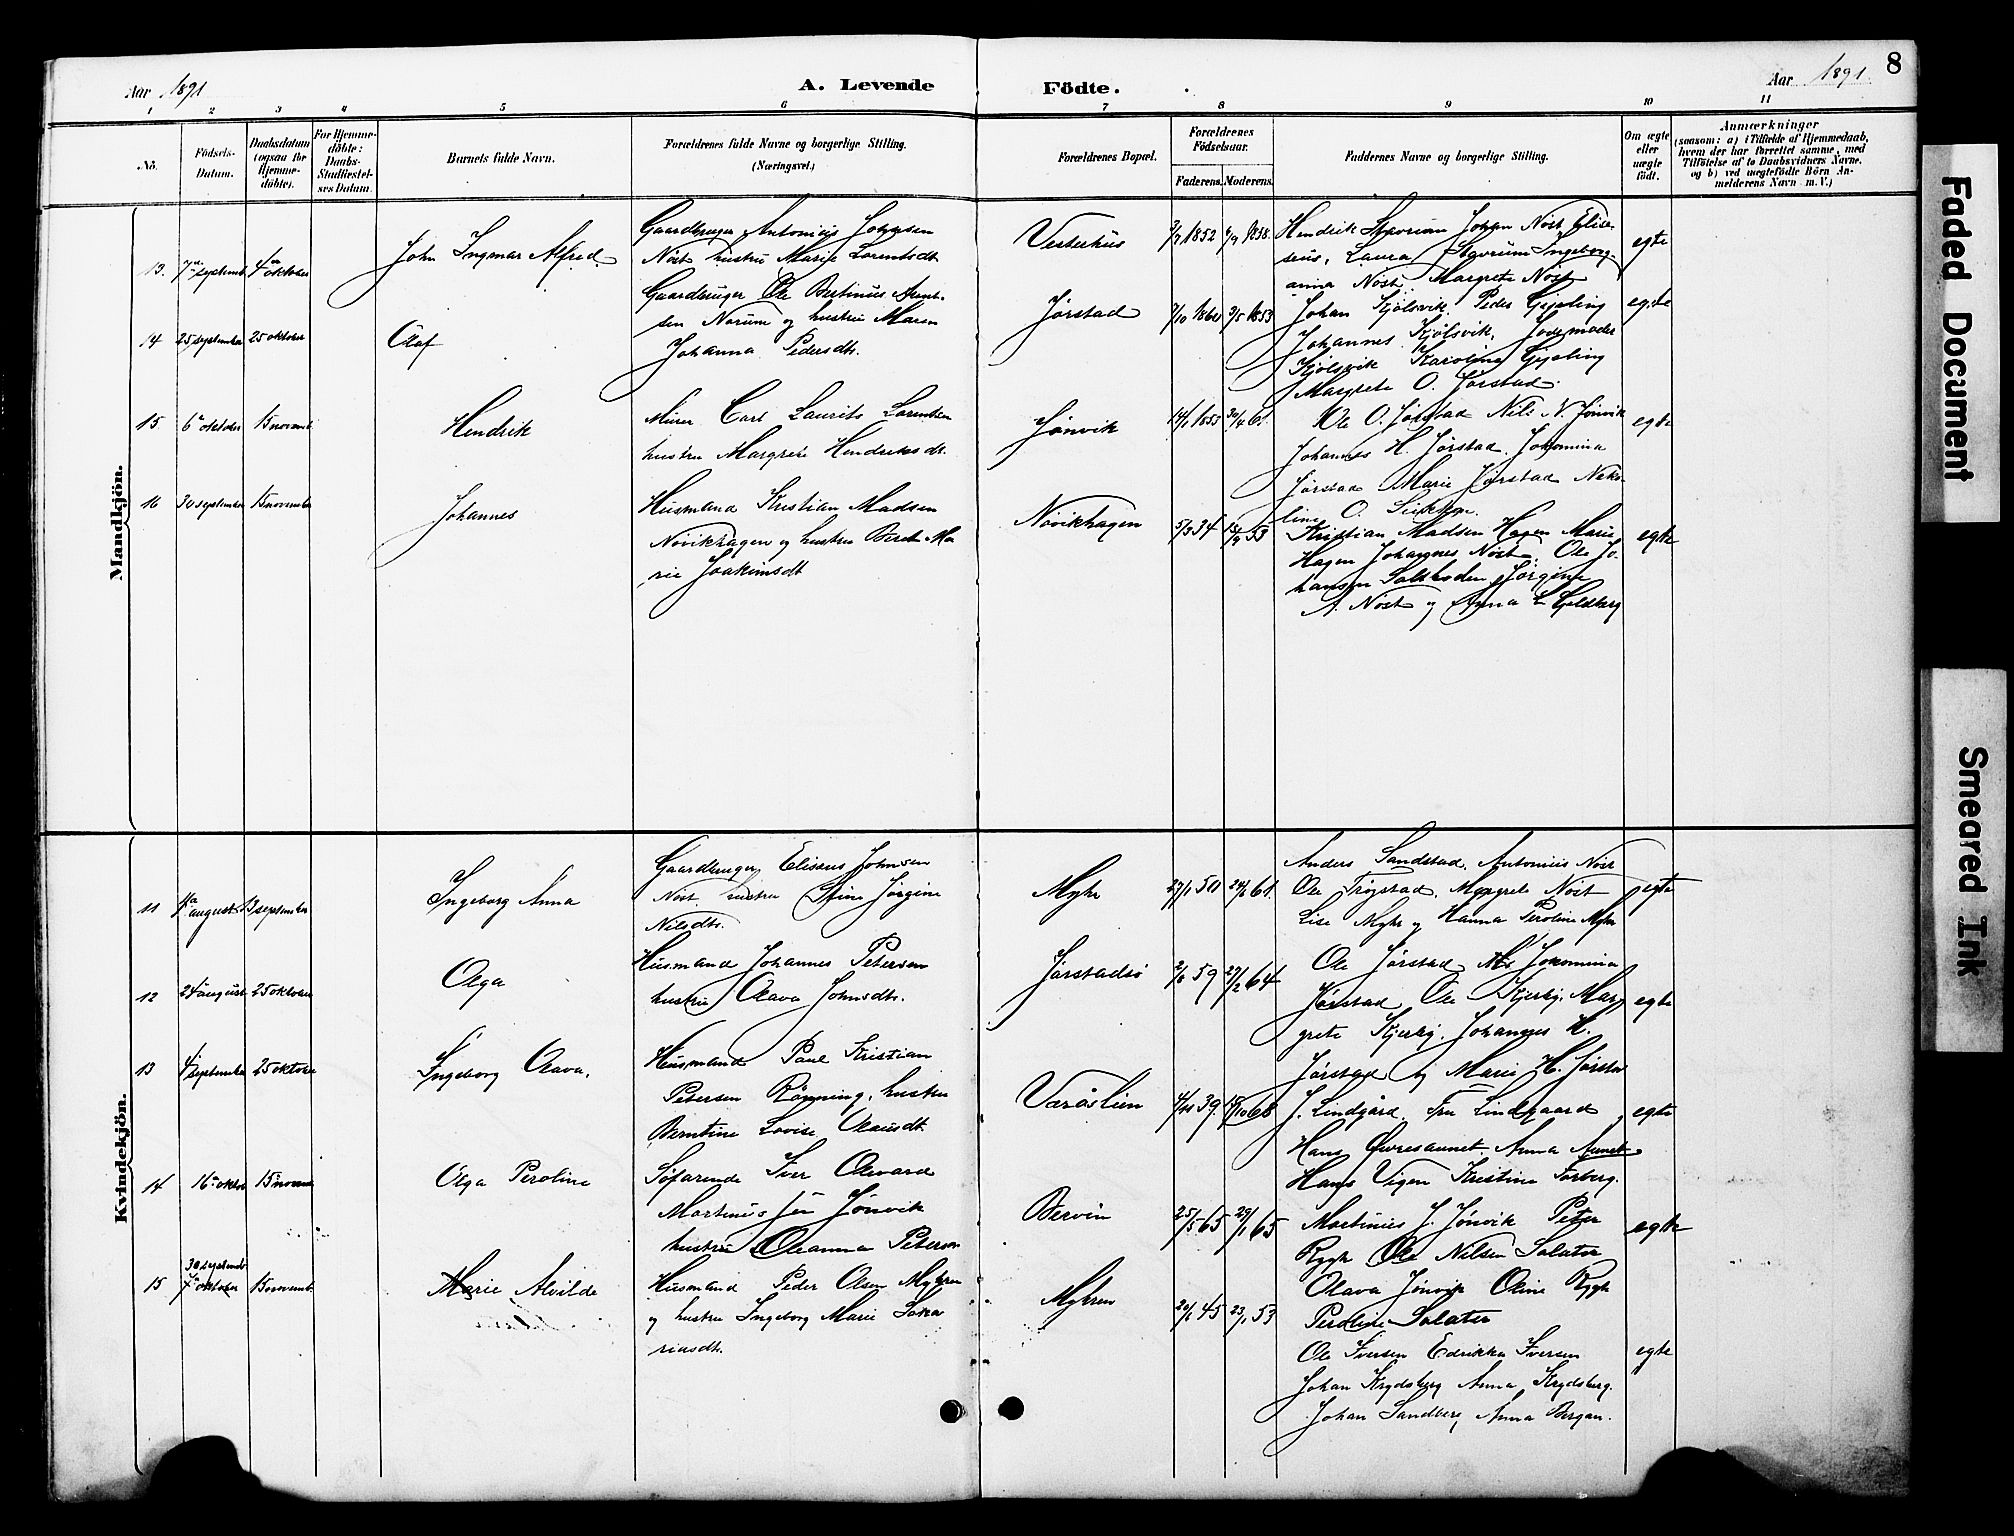 Aar 1891
A. Levende Födte.
Aar 1891. 8
1 2 3 4 5 6 7 8 9 10 11
No.
Födsels-Datum.
Daabsdatum (ogsaa for Hjemme-döbte).
For Hjemme-döbte: Daabs-Stadfæstel-ses Datum.
Barnets fulde Navn.
Forældrenes fulde Navne og borgerlige Stilling. (Næringsvei.)
Forældrenes Bopæl.
Forældrenes Födselsaar.
Faderens. Moderens.
Faddernes Navne og borgerlige Stilling.
Om ægte eller uægte födt.
Anmærkninger
(saasom: a) i Tilfælde af Hjemmedaab,
hvem der har forrettet samme, med
Tilföielse af to Daabsvidners Navne,
og b) ved uægtefödte Börn An-
melderens Navn m. V.)
Mandkjön.
13. 7de septemb 4de oktober
John Ingmar Alfred.
Gaardbruger Antonius Johnsen
Nöst hustru Marie Lorentsdt
Vesterhus
1852 1858.
Hendrik Stavrum Johan Nöst Elise-
seus, Laura Stavrum Ingeborg-
anna Nöst. Margrete Nöst
egte
14 25 september 25 oktober
Olaf
Gaardbruger Ole Bertinus Arnt-
sen Norum og hustru Maren
Johanna Pedersdt.
Jørstad
7/10 1860 9/5 1853
Johan Kjölsvik. Peder Gipling
Johannes Kjölsvik, Jordemoder
Kjölsvik Karoline Gipling
Margrete O. Jørstad.
egte
15 6te oktober 15 novemb
Hendrik
Murer Carl Laurits Lorentsen
hustru Margrete Hendriksdt.
Jønvik
14/1 1855 30/4 61.
Ole O. Jørstad Nils N. Jönvik
Johannes H. Jørstad. Jokomina
Jørstad Marie Jørstad Niko-
line O.
egte
16 30 september 15 november
Johannes
Husmand Kristian Madsen
Növikhagen og hustru Beret Ma
rie Joakimsdt
Növikhagen
5/3 34 53
Kristian Madsen Hagen Marie
Hagen Johannes Nöst. Ole Jo-
hansen Saltboden, Jørgine
A. Nöst og Anna L Goldberg
egte
Kvindekjön.
11 august 13 september
Ingeborg Anna
Gaardbruger Eliseus Johnsen
Nöst hustru Stine Jørgine
Nilsdt.
Myhr
27/1 50 61.
Anders Sandstad. Antonius Nöst
Ole Trögstad. Margrete Nöst
Lise Myhr og Hanna Peroline Myhr
egte
12 24 august 25 oktober
Olga
Husmand Johannes Petersen
hustru Olava Johnsdt.
Jørstadsö
59 27/2 64
Ole Jørstad Jokomina
Jørstad Ole Kjerby. Mar-
grete Kjerby. Johannes H.
Jørstad og Marie H. Jørstad
egte
13 september 25 oktober
Ingeborg Olava.
Husmand Paul Kristian
Petersen Rönning. hustru
Berntine Lovise Olausdt
Varåslien
4/11 39. 15/10 68
J. Lindgård. Fru Lindgaard
Hans Övresaunet. Anna Aunet.
Hans Vigen Kristine Forberg.
egte
14 16de oktob 15de novemb
Olga Peroline
Söfarende Iver Edvard
Martinus sön Jønvik
hustru Oleanna Peterse
Bervin
25/5 65 29/1 65
Martinus J. Jönvik Peter
Rygh Ole Nilsen Salater
Olava Jönvik Oline Rygh
Peroline Salater
egte
15 30 septemb 7de oktober 15 novemb.
Marie Alvilde
Husmand Peder Olsen Myhren
og hustru Ingeborg Marie Saka
riasdt.
Myhren
20/6 45 23/1 53
Ole Iversen Edrikka Iversen
Johan Krydsberg Anna Krydsberg.
Johan Sandberg Anna Bergan.
egte
Faded Document
Smeared Ink